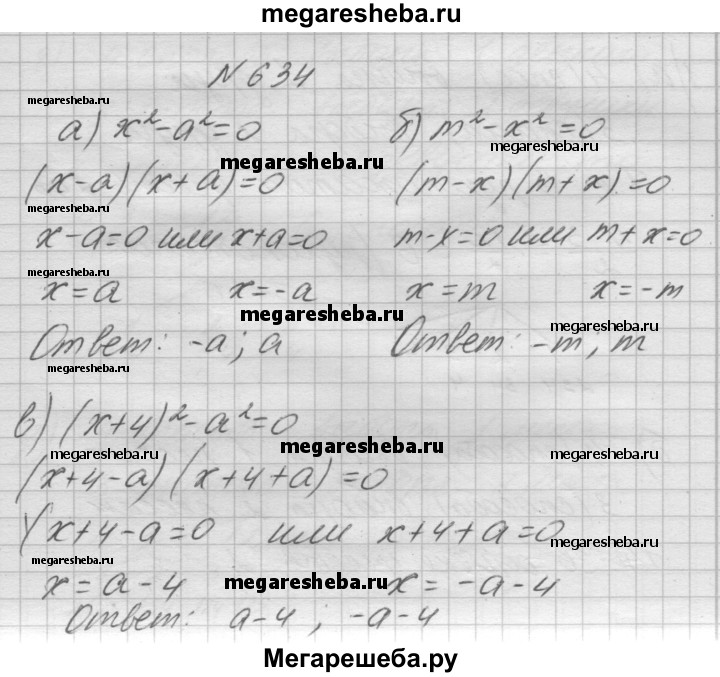 megaresheba.ru
N 634
megaresheba.ru
а) x²-a²=0
б) m²-x²=0
megaresheba.ru
megaresheba.ru
(x-a)(x+a)=0
(m-x)(m+x)=0
megaresheba.ru
x-a=0 или x+a=0
m-x=0 или m+x=0
megaresheba.ru
x=a x=-a
x=m x=-m
megaresheba.ru
megaresheba.ru
Ответ: -a; a
Ответ: -m; m
megaresheba.ru
в) (x+4)²-a²=0
megaresheba.ru
megaresheba.ru
megaresheba.ru
(x+4-a)(x+4+a)=0
x+4-a=0 или x+4+a=0
megaresheba.ru
megaresheba.ru
x=a-4 x=-a-4
megaresheba.ru
Ответ: a-4; -a-4
Мегарешеба.ру